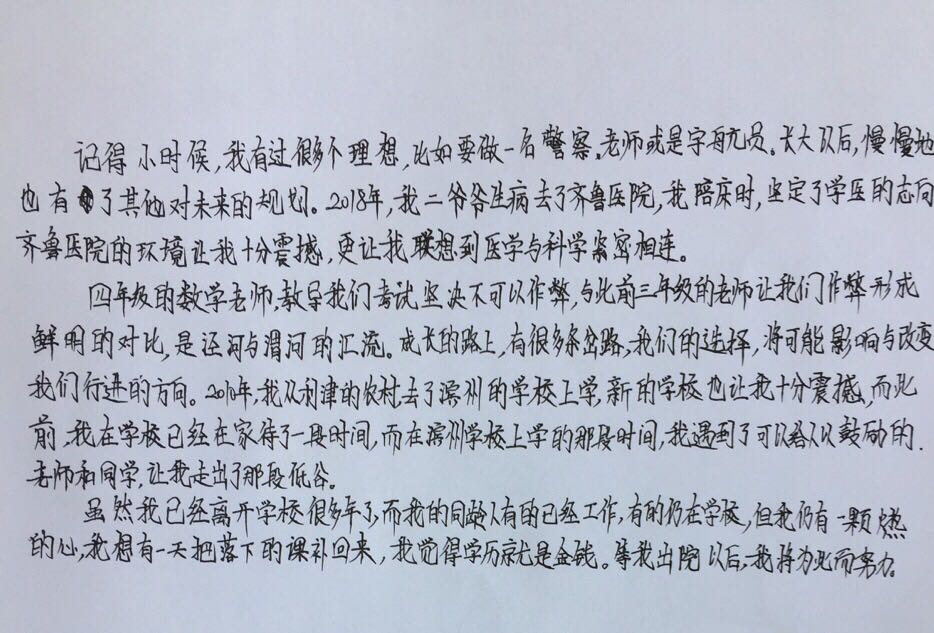 记得小时候,我有过很多个理想,比如要做一名警察,老师或是宇航员。长大以后,慢慢地
也有了其他对未来的规划。2018年,我二爷爷生病去了齐鲁医院,我陪床时,坚定了学医的志向
齐鲁医院的环境让我十分震撼,更让我联想到医学与科学紧密相连。
四年级的数学老师,教导我们考试坚决不可以作弊,与此前三年级的老师让我们作弊形成
鲜明的对比,是泾河与渭河的汇流。成长的路上,有很多条岔路,我们的选择,将可能影响与改变
我们行进的方向。年,我从利津的农村去了滨州的学校上学,新的学校也让我十分震撼,而此
前,我在学校已经在家待了一段时间,而在滨州学校上学的那段时间,我遇到了可以给人以鼓励的
老师和同学,让我走出了那段低谷。
虽然我已经离开学校很多年了,而我的同龄人有的已经工作,有的仍在学校,但我仍有一颗燃
的心,我想有一天把落下的课补回来,我觉得学历就是金钱。等我出院以后,我将为此而努力。